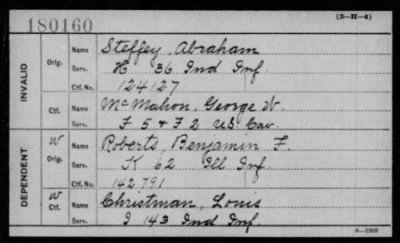 180160
(3-H-4)
INVALID
Orig.
Name Steffey, Abraham
Serv. H 36 Ind Inf.
Ctf. No. 124127
Ctf.
Name McMahon, George W.
Serv. F 5 & F 2 US. Cav.
DEPENDENT
W
Orig.
Name Roberts, Benjamin F.
Serv. K 62 Ill Inf.
Ctf. No. 142791
W
Ctf.
Name Christman, Louis
Serv. I 143 Ind Inf.